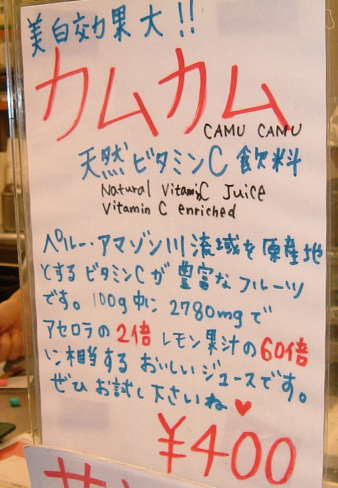 美白効果大!!
カムカム
CAMU CAMU
天然ビタミンC飲料
Natural Vitamin C Juice
Vitamin C enriched
ペルー・アマゾン川流域を原産地
とするビタミンCが豊富なフルーツ
です。100g中に2780mgで
アセロラの2倍 レモン果汁の60倍
に相当するおいしいジュースです。
ぜひお試し下さいね♥
¥400